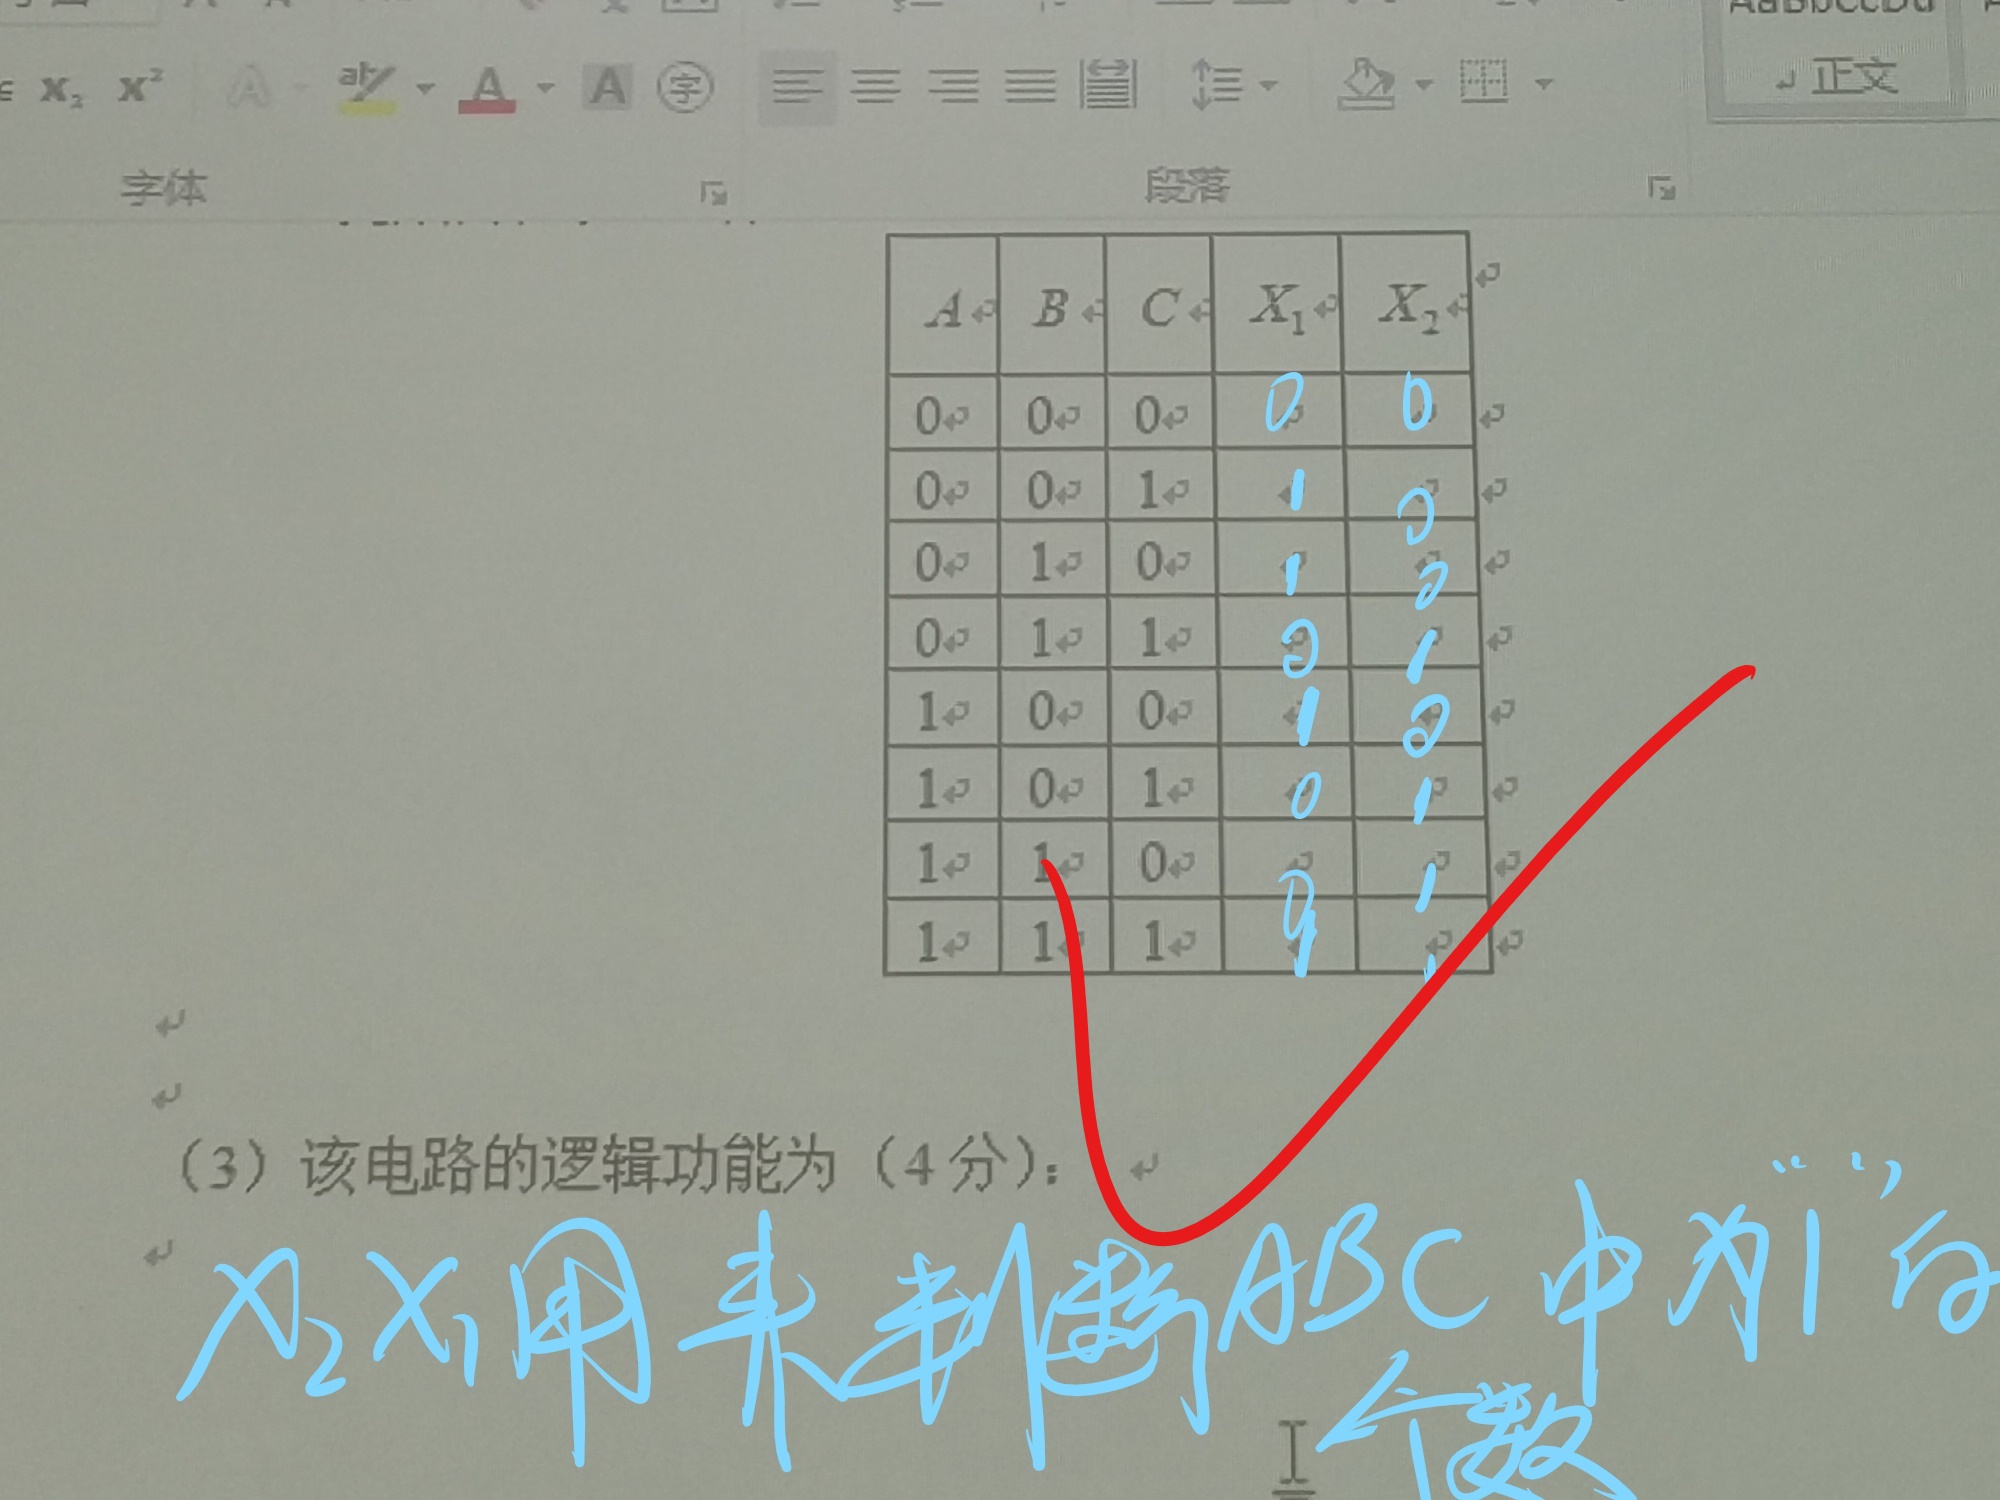 AaBbCcDd
x₂ x² A aby A A 字
正文
字体 段落
A B C X₁ X₂
0 0 0 0 0
0 0 1 1 0
0 1 0 1 0
0 1 1 0 1
1 0 0 1 0
1 0 1 0 1
1 1 0 0 1
1 1 1 1 1
（3）该电路的逻辑功能为（4 分）：
X₂X₁用来判断ABC中为“1”的
个数